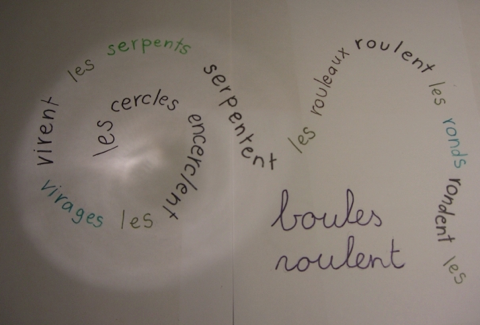 les cercles encerclent les virages virent les serpents serpentent les rouleaux roulent les ronds rondent les
boules
roulent